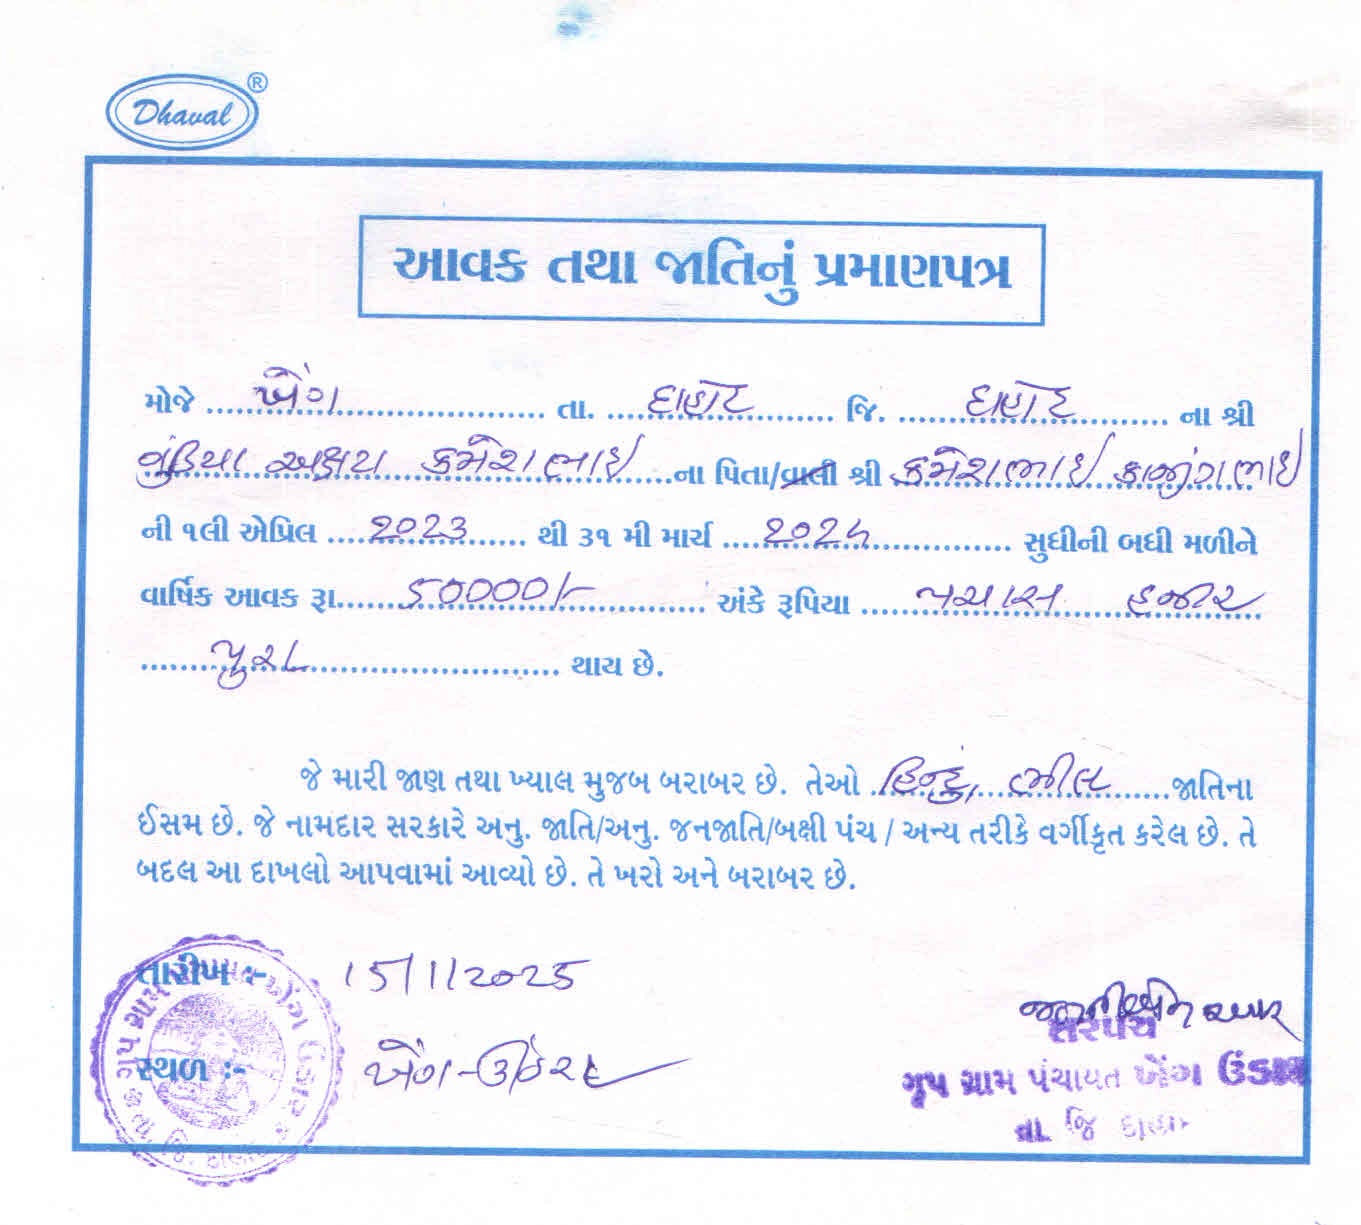 Dhaval ®
આવક તથા જાતિનું પ્રમાણપત્ર
મોજે ખેંગ તા. દાહોદ જિ. દાહોદ ના શ્રી
અક્ષય રમેશભાઇ ના પિતા/વાલી શ્રી રમેશભાઇ
ની ૧લી એપ્રિલ 2023 થી ૩૧ મી માર્ચ 2024 સુધીની બધી મળીને
વાર્ષિક આવક રૂા. 50000/- અંકે રૂપિયા પચાસ હજાર
પુરા થાય છે.
જે મારી જાણ તથા ખ્યાલ મુજબ બરાબર છે. તેઓ હિન્દું, ભીલ જાતિના
ઈસમ છે. જે નામદાર સરકારે અનુ. જાતિ/અનુ. જનજાતિ/બક્ષી પંચ / અન્ય તરીકે વર્ગીકૃત કરેલ છે. તે
બદલ આ દાખલો આપવામાં આવ્યો છે. તે ખરો અને બરાબર છે.
તારીખ :- 15/1/2025
સ્થળ :- ખેંગ-
સરપંચ
ગૃપ ગ્રામ પંચાયત ખેંગ ઉંડાર
તા. જિ દાહોદ